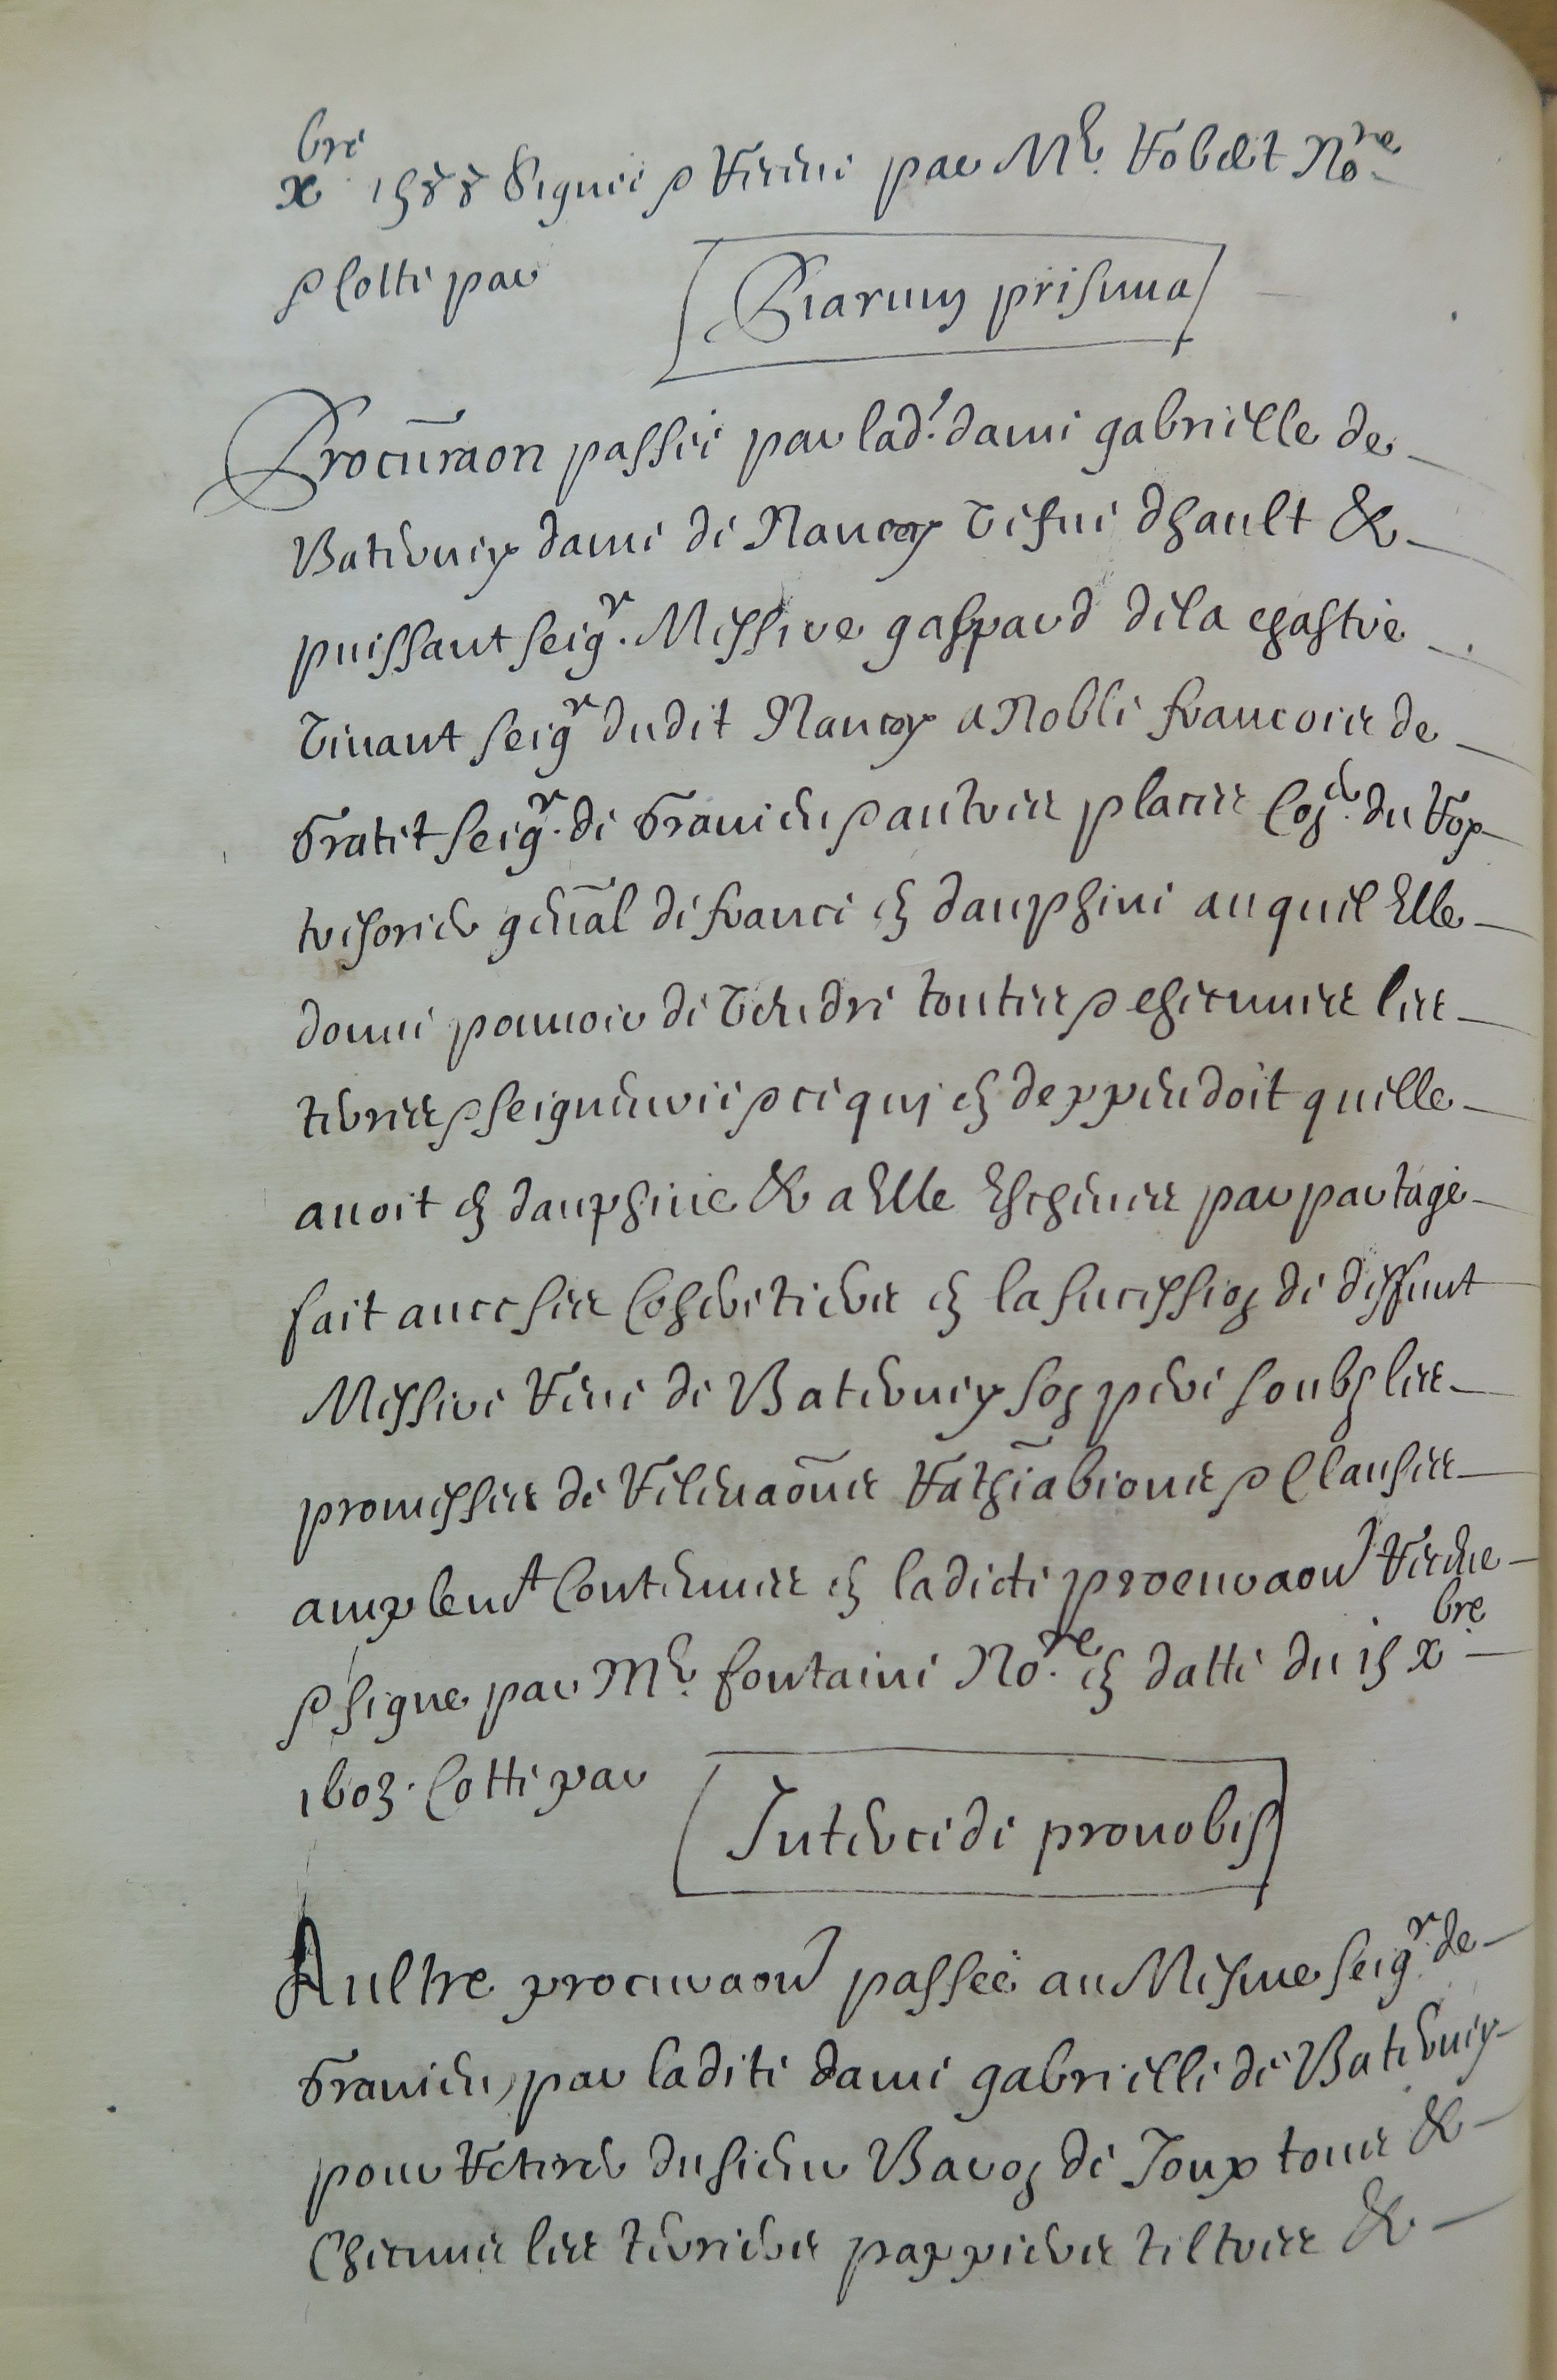 xbre 1588 Signée & Receue par Me. Robert Nore
& Cotté par
Piarum prisma
Procūraon passée par lad.e dame gabrielle de
Baternay dame de Nancay vefue dhault &
puissant seigr. Messire gaspard dela chastre
vivant seigr dudit Nancay a Noble francois de
Fratet seigr. de Granieu & aultres places Coner. du Roy
tresorier gēnal de france en dauphine auquel Elle
donne pouvoir de Vendre toutes & checunnes les
terres & seigneurie & ce quy en deppendoit quelle
avoit en dauphine & a Elle Escheues par partage
fait avec ses Coheretiers en la sucession de deffunt
Messire Rene de Baternay son pere soubz les
promesses de Relevaōnes Rathiabiones & Clauses
amplemt Contenues en ladicte procuraon Receue
& signe par Me. fontaine Nore. en datte du 15 xbre
1603. Cotté par
Intercede pro nobis
Aultre procuraon passeé au Mesme seigr. de
Granieu, par ladite dame gabrielle de Baternay
pour Retirer du sieur Baron de Joux tous &
Checuns les terriers pappiers tiltres &